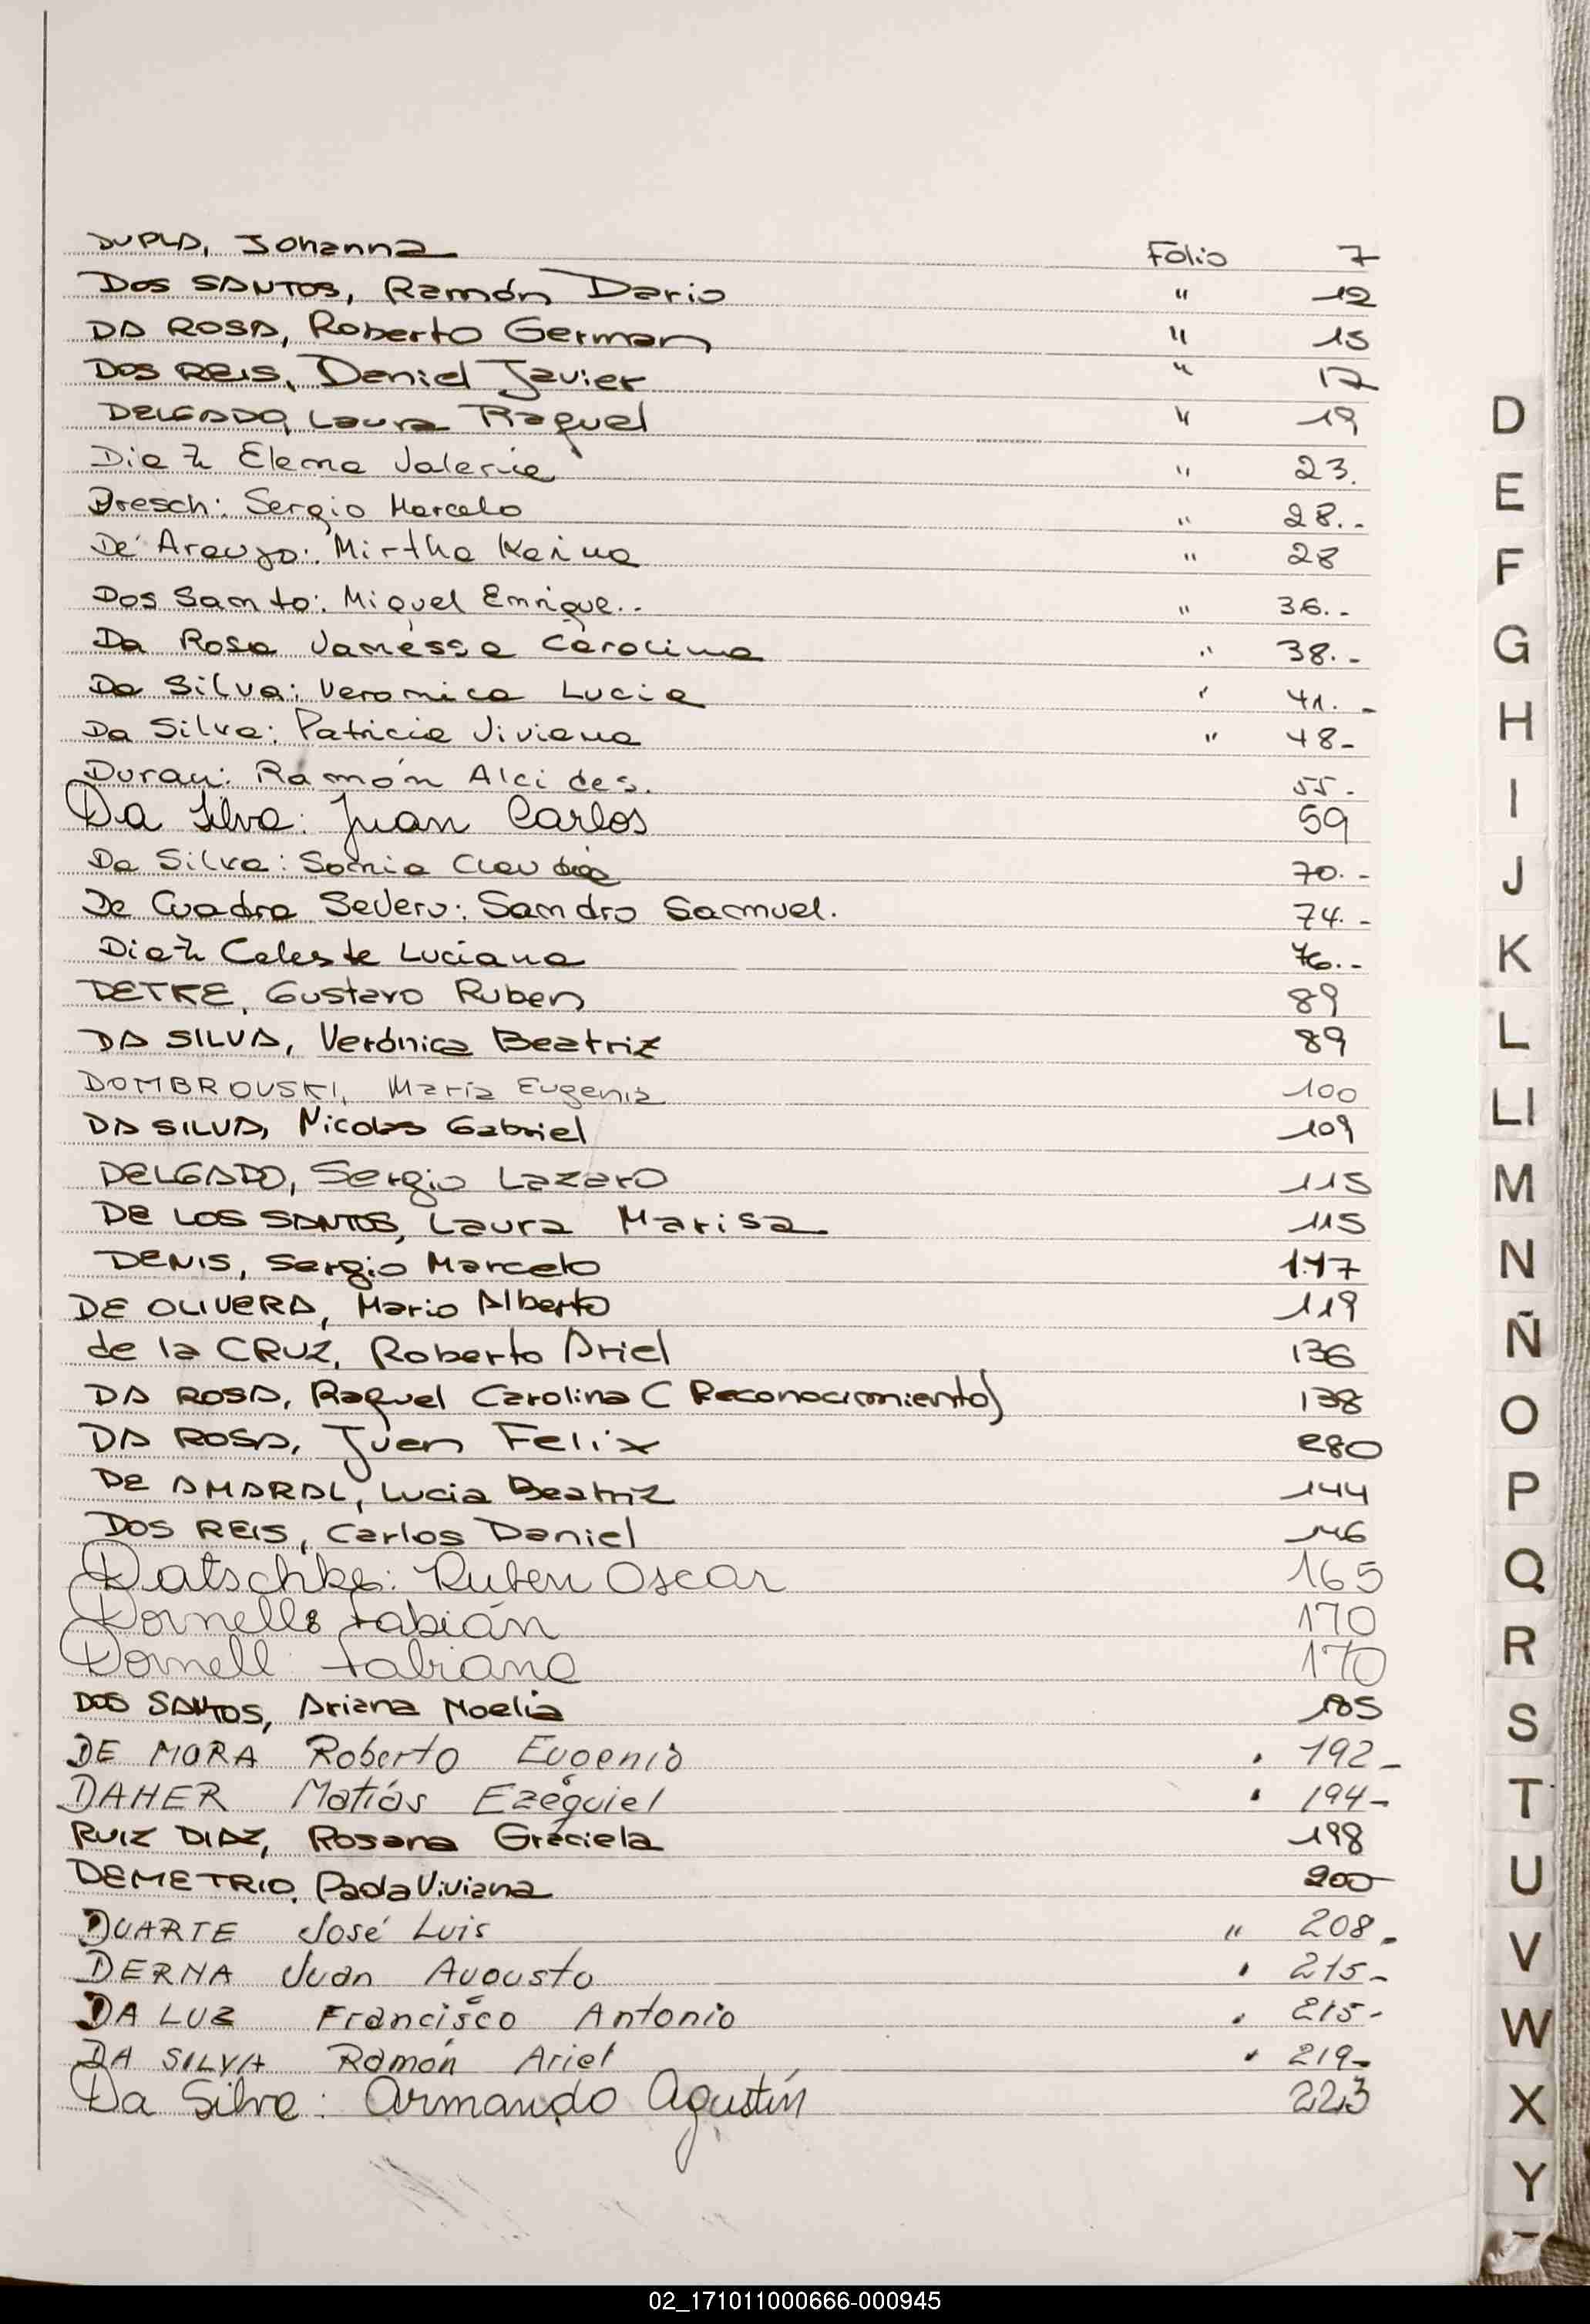 DUPLA, Johanna Folio 7
DOS SANTOS, Ramón Dario " 12
DA ROSA, Roberto German " 15
DOS REIS, Daniel Javier " 17
DELGADO, Laura Raquel " 19
Diaz Elena Valeria " 23.
Dresch: Sergio Marcelo " 28..
De Araujo: Mirtha Karina " 28
Dos Santo: Miguel Enrique.. " 36.-
Da Rosa Vanessa Carolina " 38.-
Da Silva: Veronica Lucia ' 41.-
Da Silva: Patricia Viviana " 48-
Duran: Ramón Alcides. 55.
Da Silva: Juan Carlos 59
Da Silva: Sonia Claudia 70.-
De Cuadra Severo: Sandro Samuel. 74.-
Diaz Celeste Luciana 76.-
DETKE, Gustavo Ruben 89
DA SILVA, Verónica Beatriz 89
DOMBROUSKI, María Eugenia 100
DA SILVA, Nicolas Gabriel 109
DELGADO, Sergio Lazaro 115
DE LOS SANTOS, Laura Marisa. 115
DENIS, Sergio Marcelo 117
DE OLIVERA, Mario Alberto 119
de la CRUZ, Roberto Ariel 136
DA ROSA, Raquel Carolina (Reconocimiento) 138
DA ROSA, Juan Felix 280
DE AMARAL, Lucia Beatriz 144
DOS REIS, Carlos Daniel 146
Datschke: Ruben Oscar 165
Dornell: Fabián 170
Dornell: Fabiana 170
DOS SANTOS, Ariana Noelia 185
DE MORA Roberto Eugenio . 192_
DAHER Matías Ezequiel ' 194-
RUIZ DIAZ, Rosana Graciela 198
DEMETRIO, Paola Viviana 200
DUARTE José Luis " 208.
DERNA Juan Augusto ' 215-
DA LUZ Francisco Antonio . 215-
DA SILVA Ramón Ariel ' 219-
Da Silva: Armando Agustín 223
D
E
F
G
H
I
J
K
L
Ll
M
N
Ñ
O
P
Q
R
S
T
U
V
W
X
Y
02_171011000666-000945